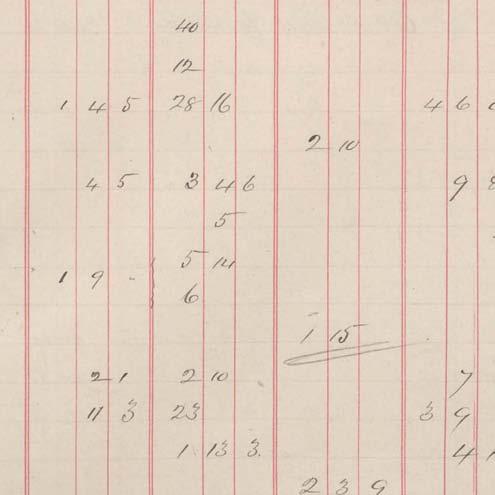 40
12
1 4 5 28 16 4 6
2 10
4 5 3 4 6 9 8
5
1 9 - 5 14
6
1 15
2 1 2 10 7
11 3 23 3 9
1 13 3. 4 1
2 3 9